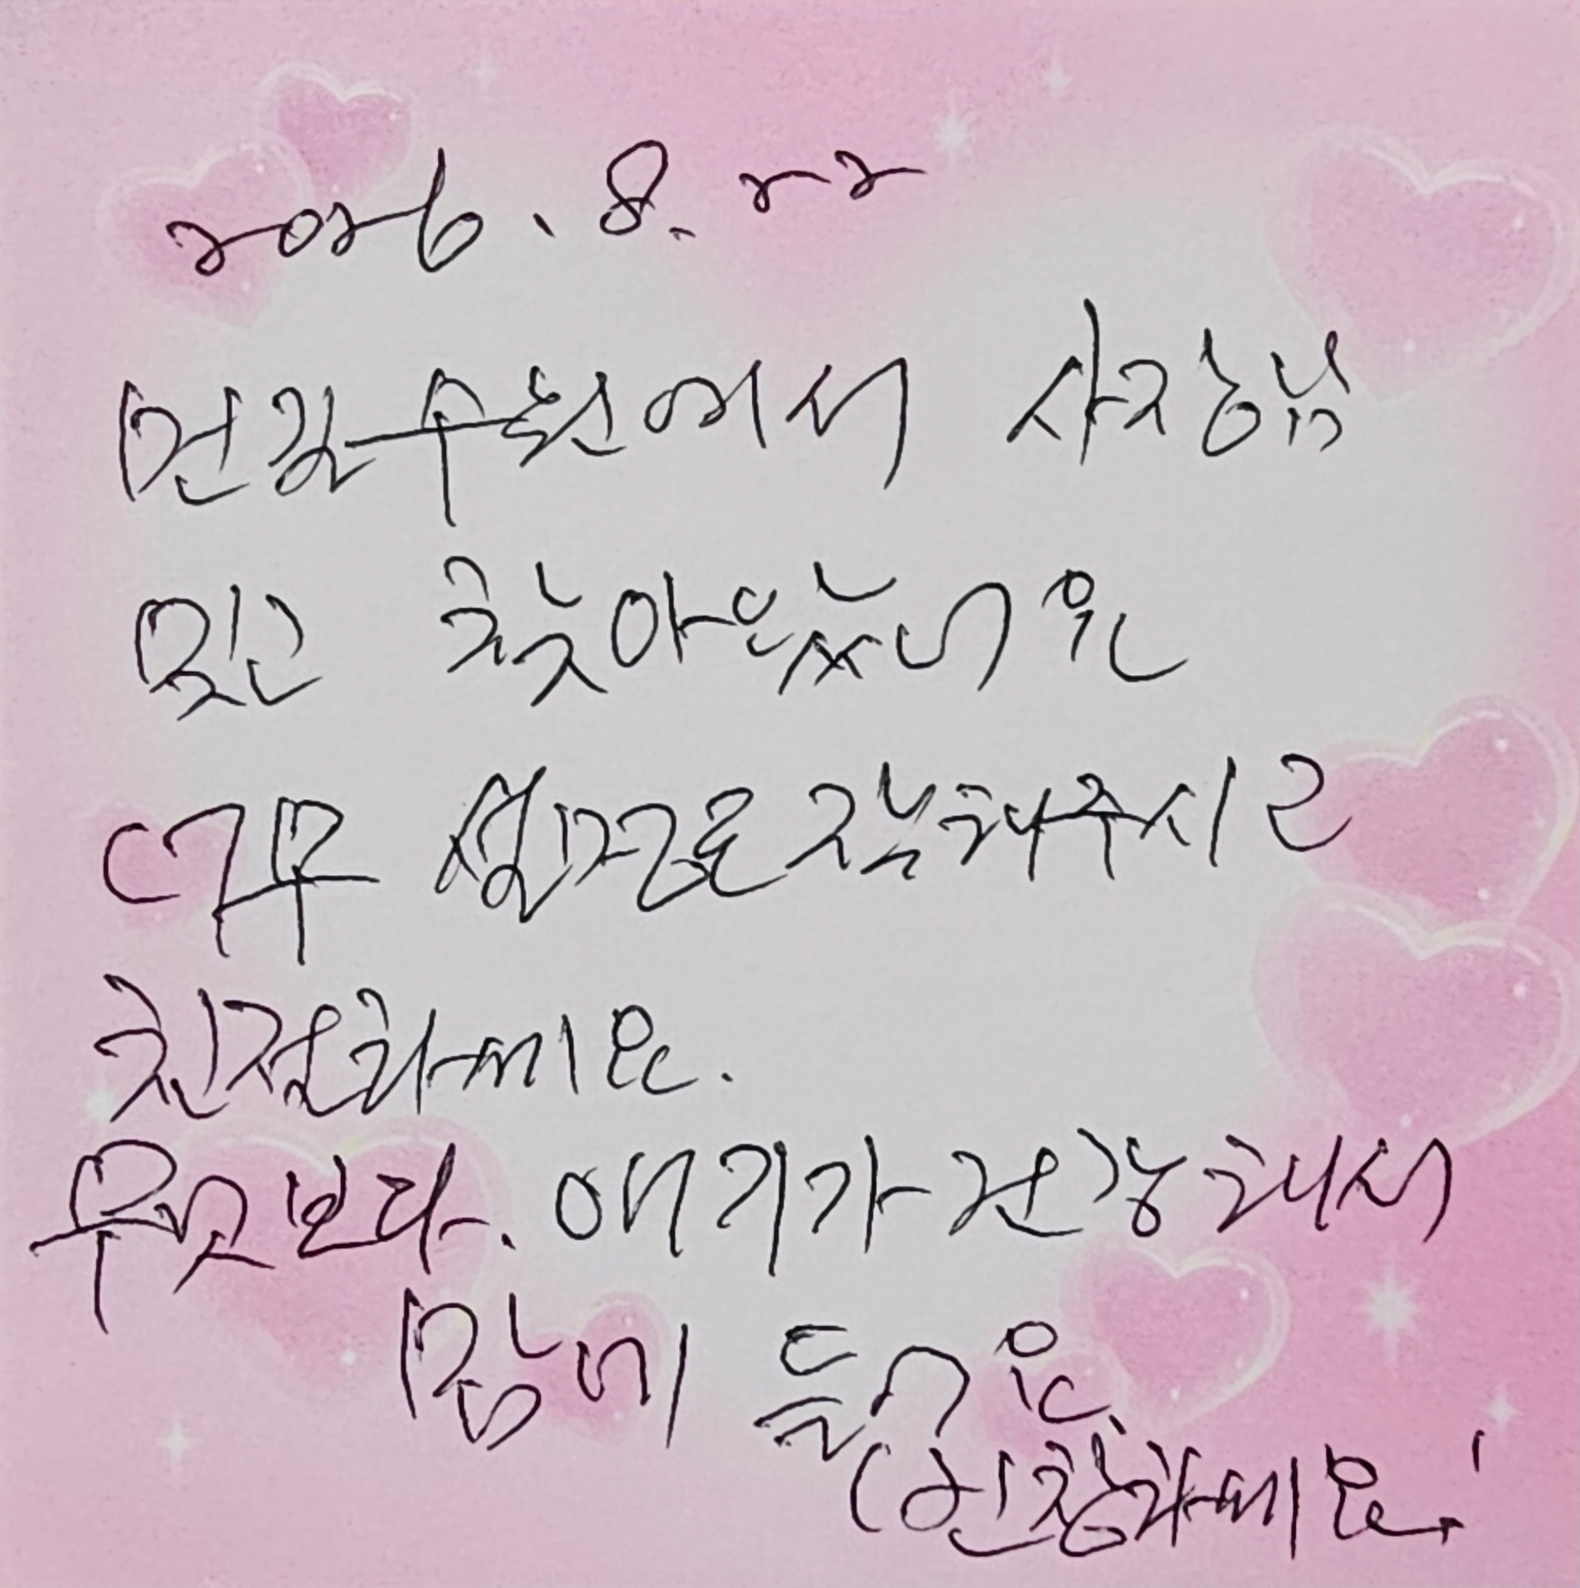 2026. 8. 22
먼길 수원에서 사장님
믿고 찾아왔어요
너무 설명도 잘해주시고
친절하세요.
무엇보다. 애기가 건강해서
맘에 들어요.
번창하세요!